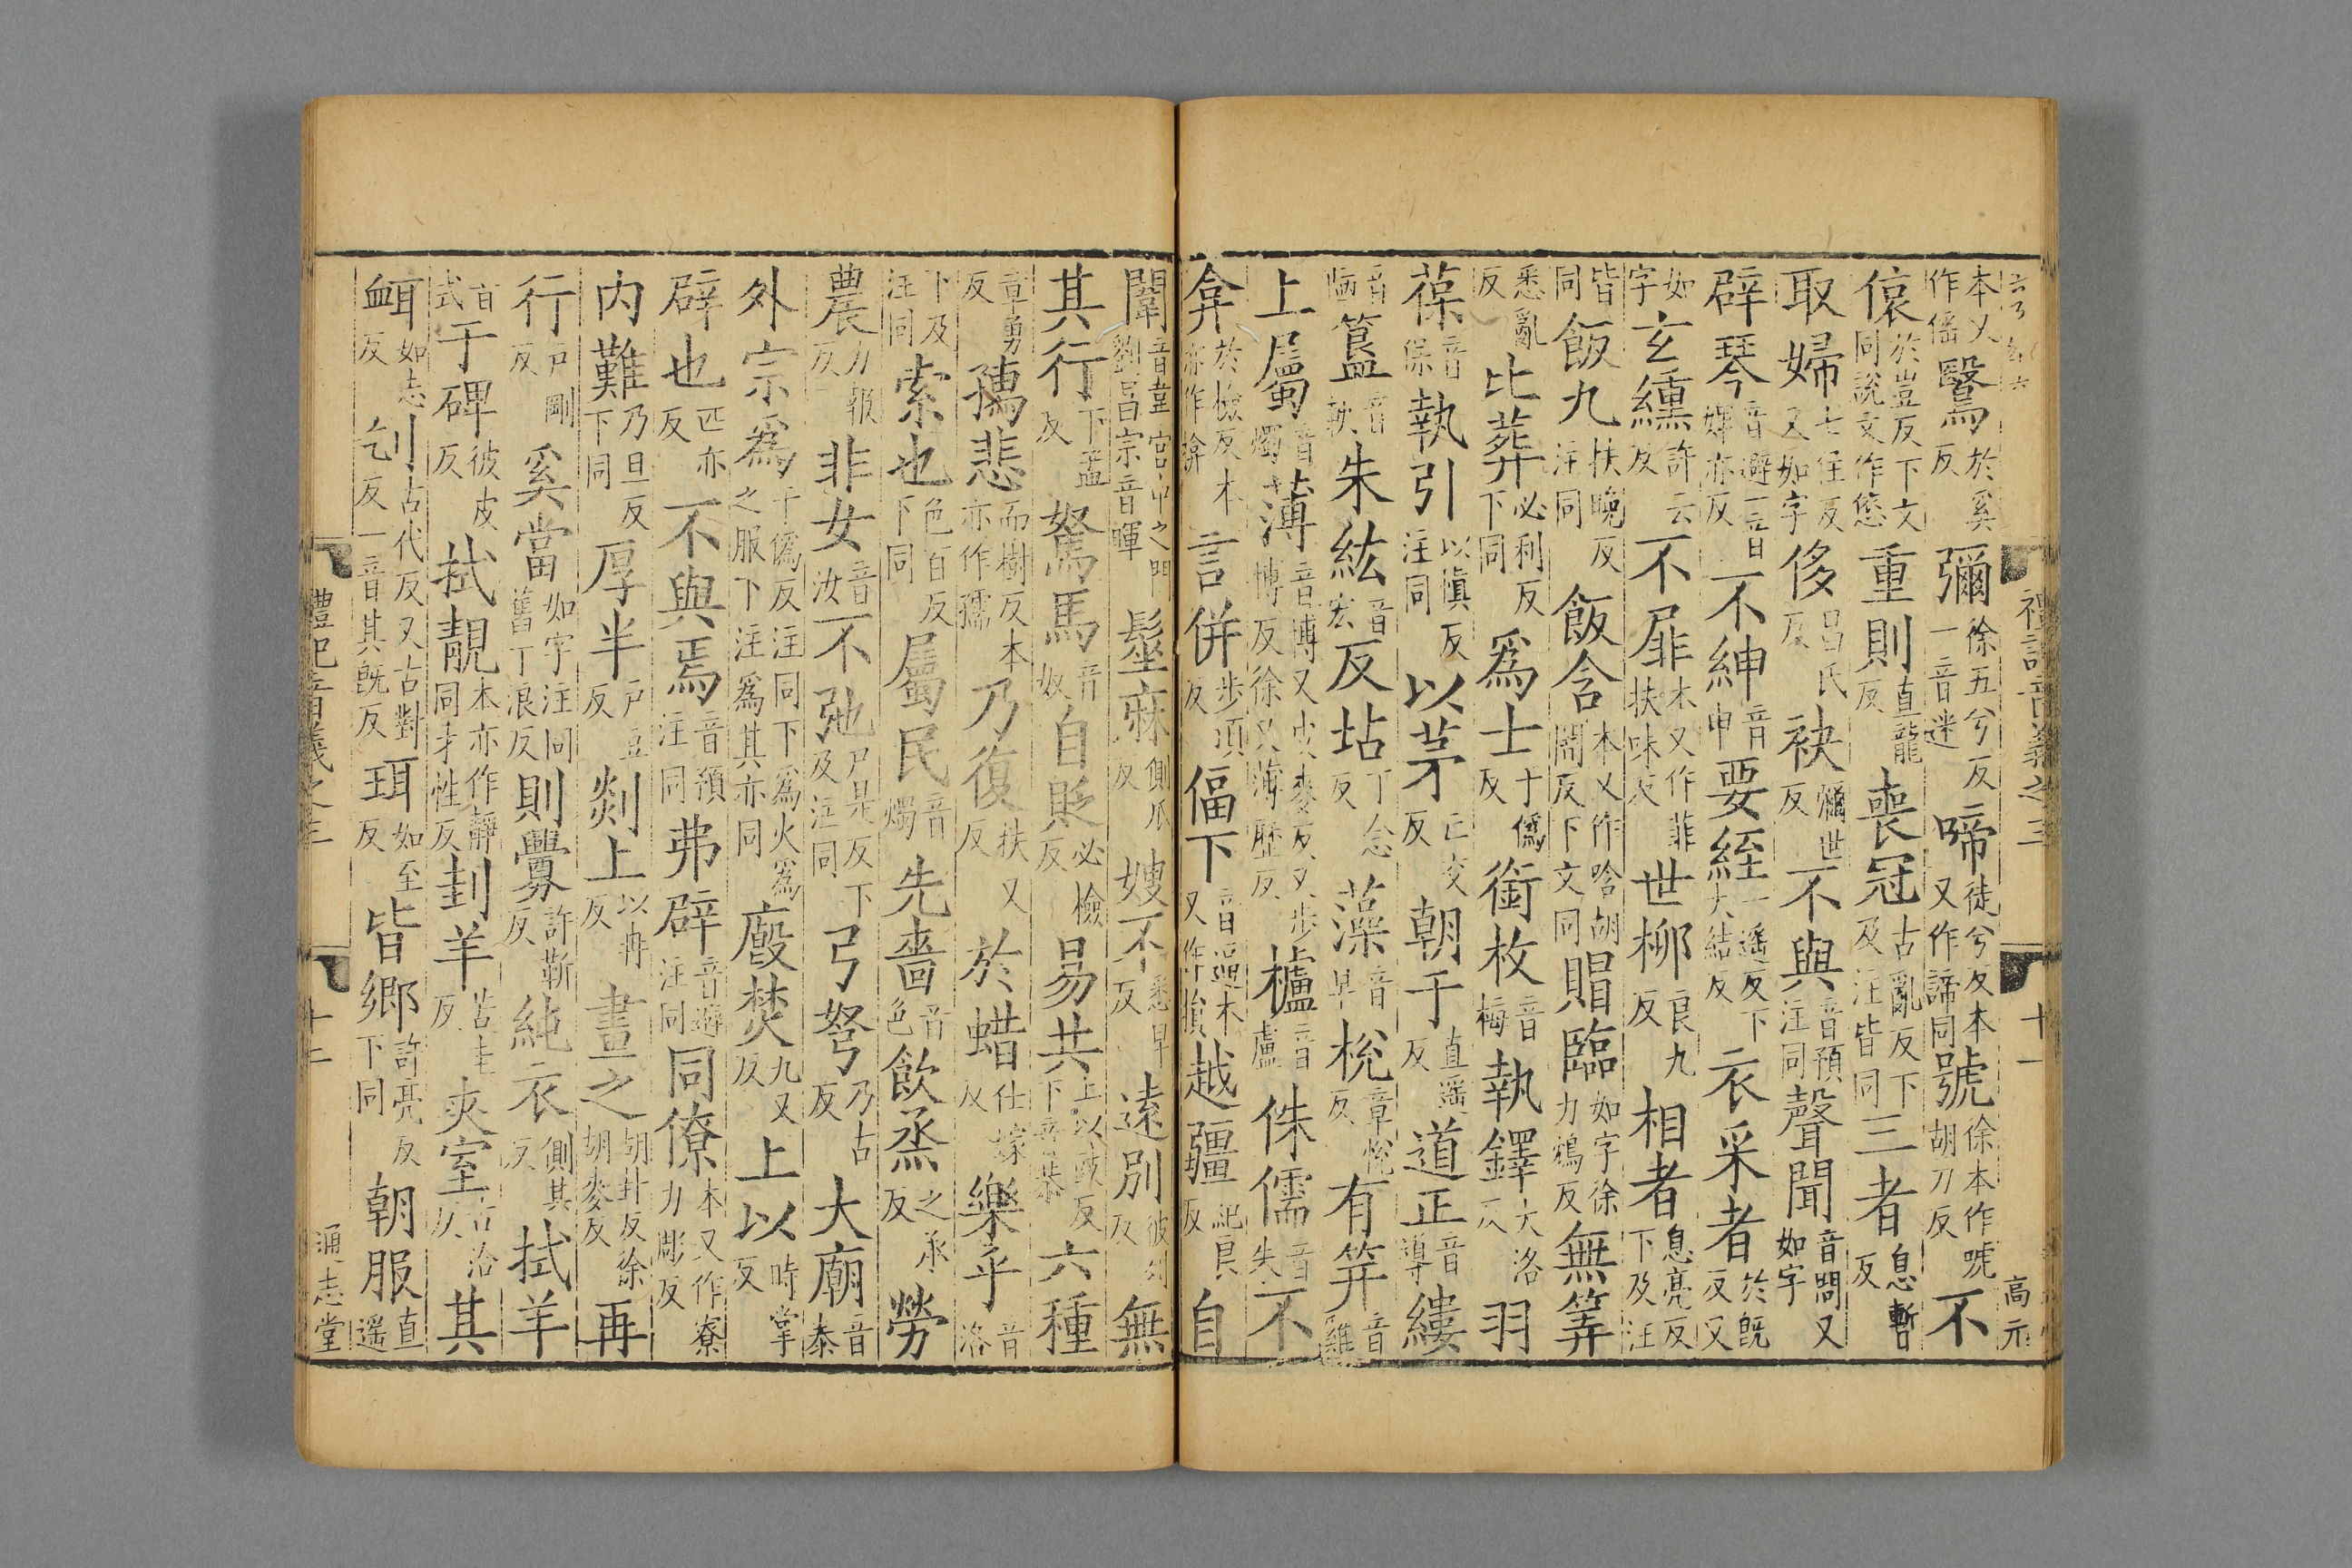 本又作傜鷖於奚反彌徐五兮反一音迷啼徒兮反本又作諦同號徐本作唬胡刀反不
偯於豈反下文同說文作㥋重則直龍反喪冠古亂反下及注皆同三者息暫反
取婦七住反又如字侈昌氏反袂彌世反不與音預注同聲聞音問又如字
辟琴音避一音婢亦反不紳音申要絰一遙反下大結反衣采者於旣反又
如字玄纁許云反不屝本又作菲扶味反世柳良九反相者息亮反下及注
皆同飯九扶晚反注同飯含本又作唅胡闇反下文同賵臨如字徐力鴆反無筭
悉亂反比葬必利反下同爲士于僞反銜枚音梅執鐸大洛反羽
葆音保執引以愼反注同以茅亡交反朝于直遙反道正音導縷
音陋簋音軌朱紘音宏反坫丁念反藻音早梲章悅反有筓音雞
上屬音燭薄音博又皮麥反又步博反徐又薄歷反櫨音盧侏儒音失不
弇於檢反本亦作揜言併步頂反偪下音逼本又作損越疆紀良反自
闈音韋宮中之門劉昌宗音暉髽麻側瓜反嫂不悉早反遠別彼列反無
其行下孟反駑馬音奴自貶必檢反易共上以豉反下音恭六種
章勇反孺悲而樹反本亦作孺乃復扶又反於蜡仕嫁反樂乎音洛
下及注同索也色百反下同屬民音燭先嗇音色飲烝之承反勞
農力報反非女音汝不弛尸是反下及注同弓弩乃古反大廟音泰
外宗爲于僞反注同下爲火爲之服下注爲其亦同廄焚九又反上以時掌反
辟也匹亦反不與焉音預注同弗辟音避注同同僚本又作寮力彫反
內難乃旦反下同厚半戶豆反剡上以冉反畫之胡卦反徐胡麥反再
行戶剛反奚當如字注同舊丁浪反則釁許靳反純衣側其反拭羊
音式于碑彼皮反拭靚本亦作靜同才性反刲羊苦圭反夾室古洽反其
衈如志反刉古代反又古對乞反一音其旣反珥如至反皆鄉許亮反下同朝服直遙
禮記音義之三
十一
高示
禮記音義之三
十二
通志堂